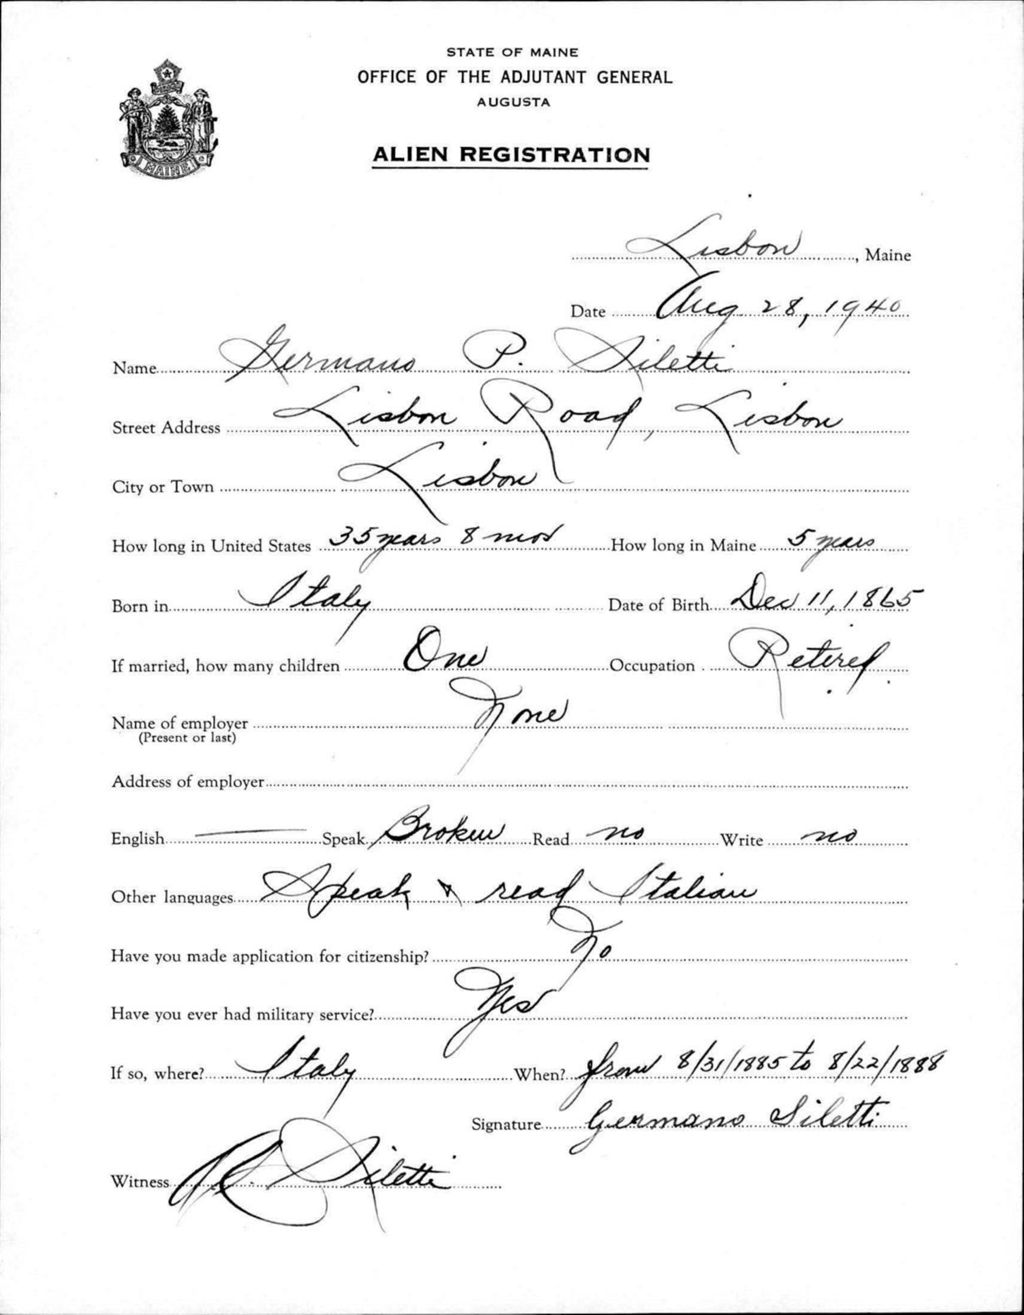 STATE OF MAINE
OFFICE OF THE ADJUTANT GENERAL
AUGUSTA
ALIEN REGISTRATION
MAINE
Lisbon, Maine
Date Aug 28, 1940
Name Germano P. Siletti
Street Address Lisbon Road, Lisbon
City or Town Lisbon
How long in United States 35 years 8 mos How long in Maine 5 years
Born in Italy Date of Birth Dec 11, 1865
If married, how many children One Occupation Retired.
Name of employer None
(Present or last)
Address of employer
English — Speak Broken Read no Write no
Other languages Speak & read Italian
Have you made application for citizenship? No
Have you ever had military service? Yes
If so, where? Italy When? from 8/31/1885 to 8/22/1888
Signature Germano Siletti
Witness Siletti